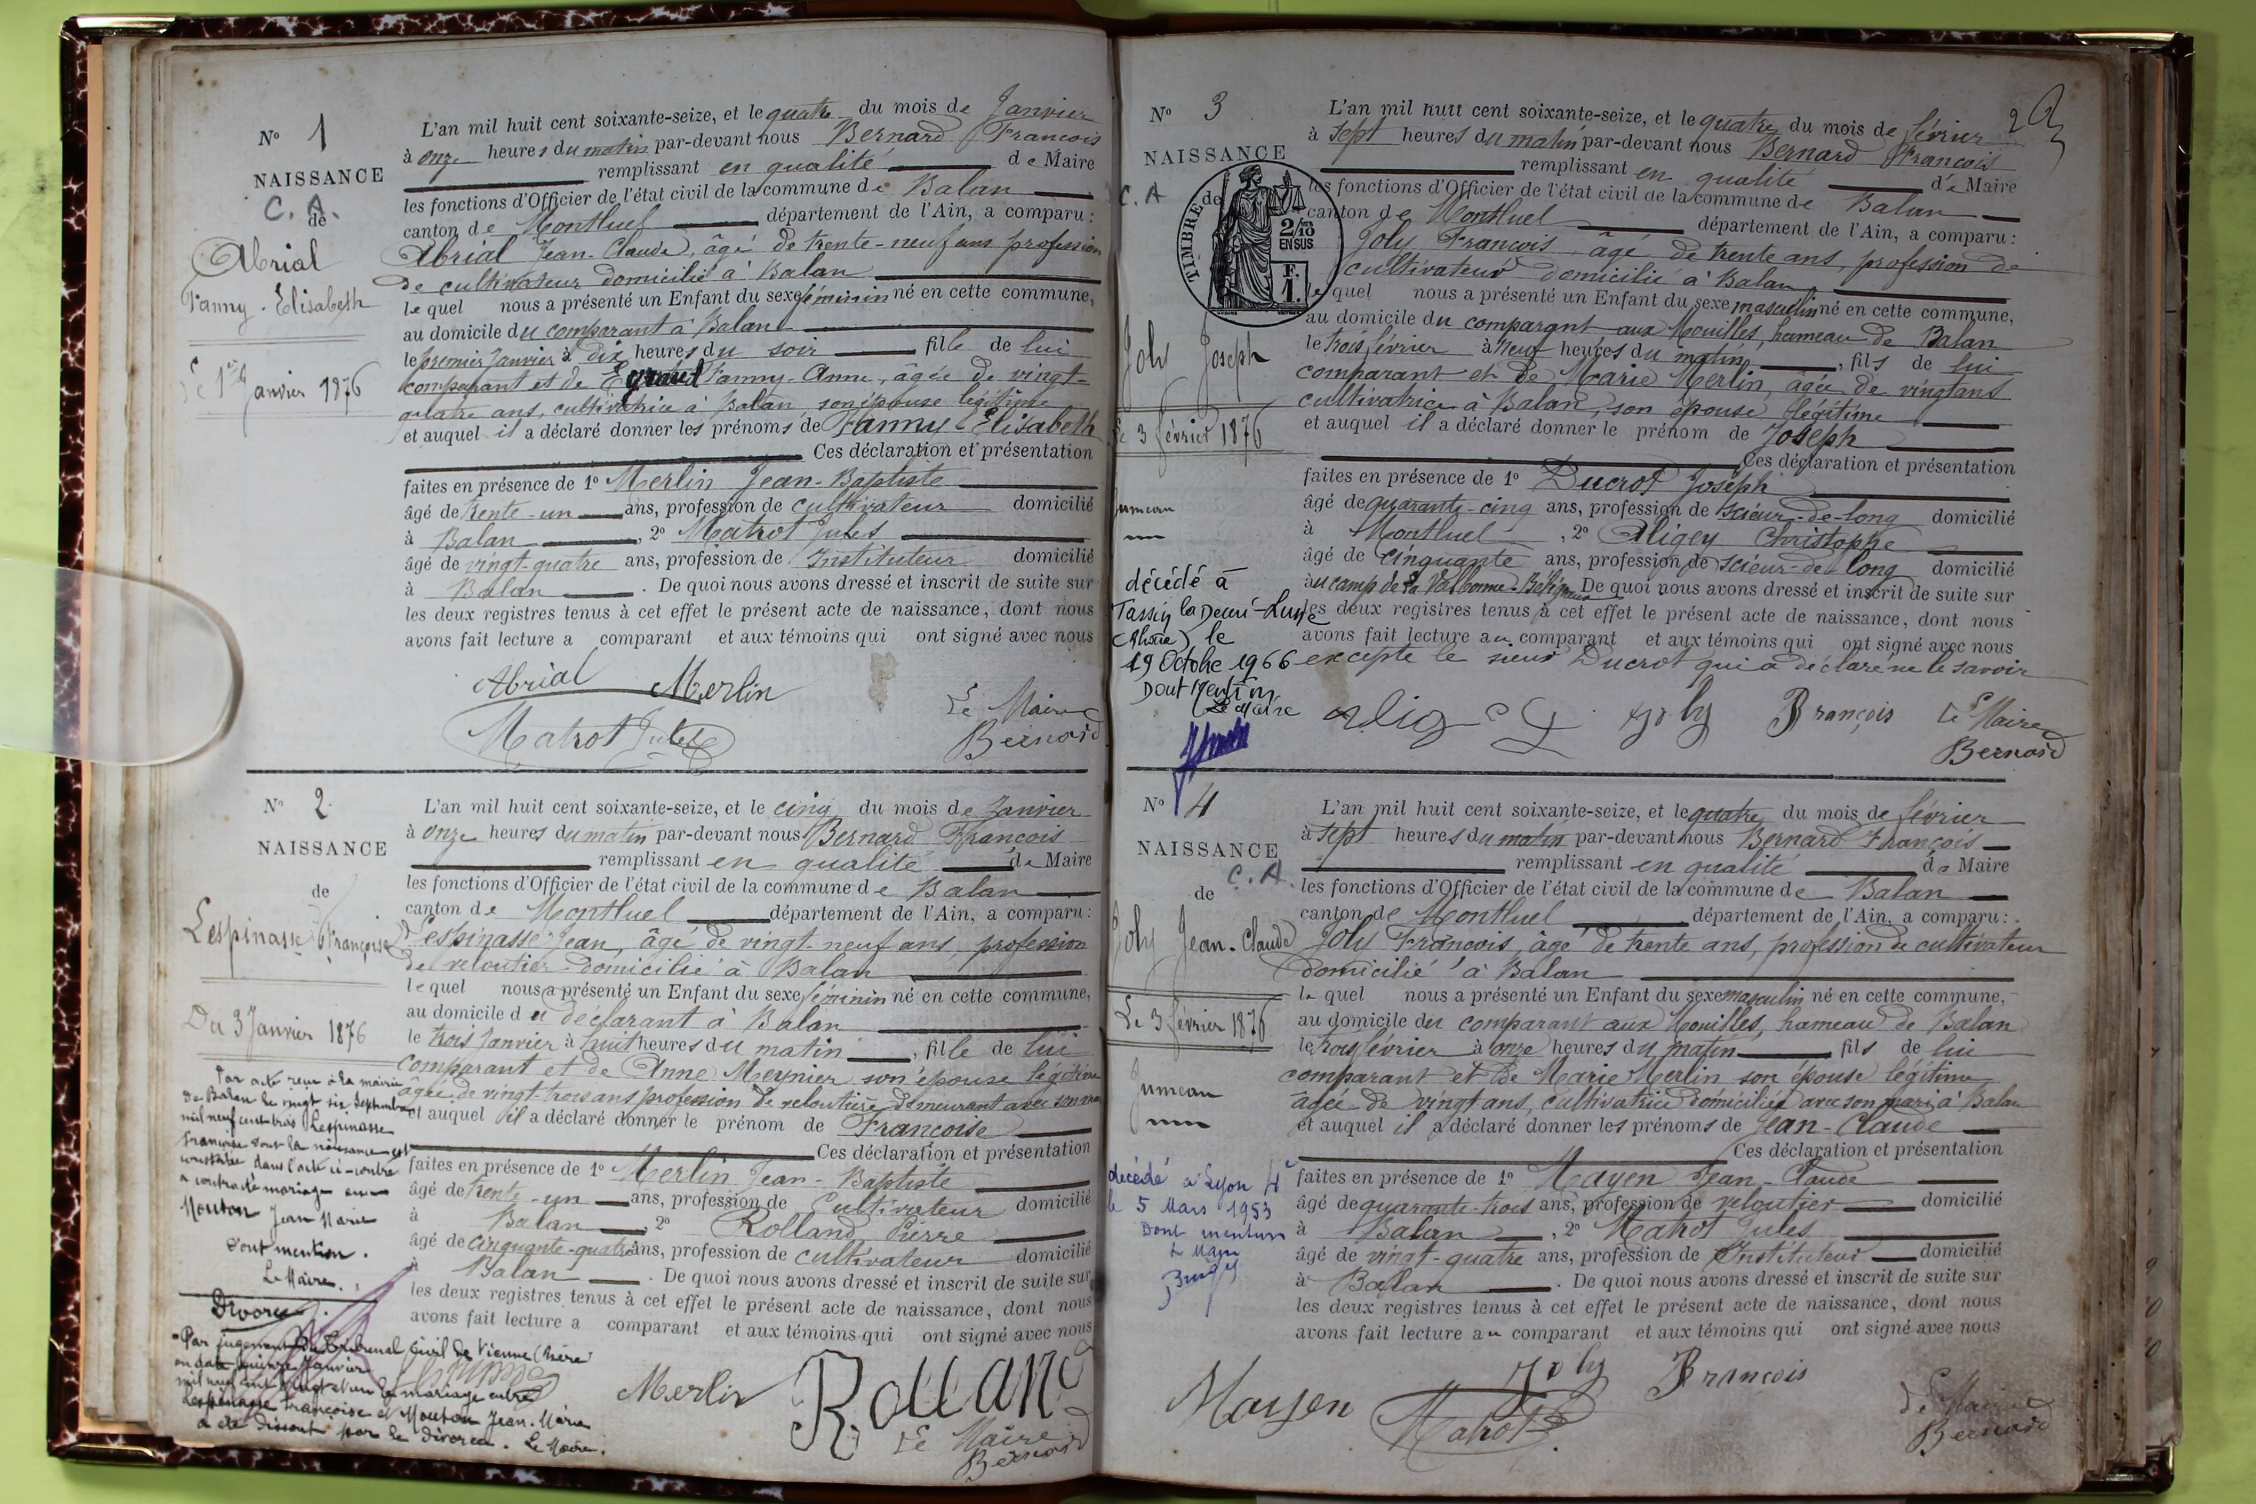 N° 1
NAISSANCE
C. A.
de
Abrial
Fanny-Elisabeth
Le 1er Janvier 1876
L'an mil huit cent soixante-seize, et le quatre du mois de Janvier
à onze heures du matin par-devant nous Bernard François
remplissant en qualité de Maire
les fonctions d'Officier de l'état civil de la commune de Balan
canton de Montluel département de l'Ain, a comparu :
Abrial Jean-Claude, âgé de trente-neuf ans profession
de cultivateur domicilié à Balan
lequel nous a présenté un Enfant du sexe féminin né en cette commune,
au domicile du comparant à Balan
le premier Janvier à dix heures du soir fille de lui
comparant et de Fanny-Anne, âgée de vingt-
quatre ans, cultivatrice à Balan, son épouse légitime
et auquel il a déclaré donner les prénoms de Fanny Elisabeth
Ces déclaration et présentation
faites en présence de 1° Merlin Jean-Baptiste
âgé de trente-un ans, profession de cultivateur domicilié
à Balan, 2° Matrot Jules
âgé de vingt-quatre ans, profession de Instituteur domicilié
à Balan. De quoi nous avons dressé et inscrit de suite sur
les deux registres tenus à cet effet le présent acte de naissance, dont nous
avons fait lecture a comparant et aux témoins qui ont signé avec nous
Abrial Merlin
Matrot Jules
Le Maire
Bernard
N° 2
NAISSANCE
de
Lespinasse Françoise
Du 3 Janvier 1876
Par acte reçu à la mairie
de Balan le vingt six Septembre
mil neuf cent trois Lespinasse
Françoise dont la naissance est
constatée dans l'acte ci-contre
a contracté mariage avec
Mouton Jean Marie
Dont mention.
Le Maire.
Divorce.
Par jugement du Tribunal Civil de Vienne (Isère)
en date quinze Janvier
mil neuf cent vingt et un le mariage entre
Lespinasse Françoise et Mouton Jean-Marie
a été dissout par le divorce. Le Maire.
L'an mil huit cent soixante-seize, et le cinq du mois de Janvier
à onze heures du matin par-devant nous Bernard François
remplissant en qualité de Maire
les fonctions d'Officier de l'état civil de la commune de Balan
canton de Montluel département de l'Ain, a comparu :
Lespinasse Jean, âgé de vingt-neuf ans, profession
de veloutier domicilié à Balan
lequel nous a présenté un Enfant du sexe féminin né en cette commune,
au domicile du déclarant à Balan
le trois Janvier à huit heures du matin, fille de lui
comparant et de Anne Meynier son épouse légitime
âgée de vingt-trois ans profession de veloutière demeurant avec son mari
et auquel il a déclaré donner le prénom de Françoise
Ces déclaration et présentation
faites en présence de 1° Merlin Jean-Baptiste
âgé de trente-un ans, profession de Cultivateur domicilié
à Balan, 2° Rolland Pierre
âgé de cinquante-quatre ans, profession de cultivateur domicilié
à Balan. De quoi nous avons dressé et inscrit de suite sur
les deux registres tenus à cet effet le présent acte de naissance, dont nous
avons fait lecture a comparant et aux témoins qui ont signé avec nous
Merlin Rolland
Le Maire
Bernard
N° 3
NAISSANCE
C. A de
TIMBRE
2/10
EN SUS
F.
1.
Joly Joseph
Le 3 février 1876
Jumeau
décédé à
Tassin la Demi-Lune
(Rhône) le
19 Octobre 1966
Dont Mention
Le Maire
2
L'an mil huit cent soixante-seize, et le quatre du mois de février
à sept heures du matin par-devant nous Bernard François
remplissant en qualité de Maire
les fonctions d'Officier de l'état civil de la commune de Balan
canton de Montluel département de l'Ain, a comparu :
Joly François âgé de trente ans, profession de
cultivateur domicilié à Balan,
lequel nous a présenté un Enfant du sexe masculin né en cette commune,
au domicile du comparant aux Mouilles, hameau de Balan
le trois février à neuf heures du matin, fils de lui
comparant et de Marie Merlin, âgée de vingt ans
cultivatrice à Balan, son épouse légitime
et auquel il a déclaré donner le prénom de Joseph
Ces déclaration et présentation
faites en présence de 1° Ducrot Joseph
âgé de quarante-cinq ans, profession de scieur-de-long domicilié
à Montluel, 2° Aligey Christophe
âgé de cinquante ans, profession de scieur-de-long domicilié
au camp de la Valbonne-Béligneux De quoi nous avons dressé et inscrit de suite sur
les deux registres tenus à cet effet le présent acte de naissance, dont nous
avons fait lecture au comparant et aux témoins qui ont signé avec nous
excepté le sieur Ducrot qui a déclaré ne le savoir
Aligey Joly François Le Maire
Bernard
N° 4
NAISSANCE
C. A.
de
Joly Jean-Claude
Le 3 février 1876
Jumeau
décédé à Lyon 4e
le 5 Mars 1953
Dont mention
Le Maire
L'an mil huit cent soixante-seize, et le quatre du mois de février
à sept heures du matin par-devant nous Bernard François
remplissant en qualité de Maire
les fonctions d'Officier de l'état civil de la commune de Balan
canton de Montluel département de l'Ain, a comparu :
Joly François, âgé de trente ans, profession de cultivateur
domicilié à Balan
lequel nous a présenté un Enfant du sexe masculin né en cette commune,
au domicile du comparant aux Mouilles, hameau de Balan
le trois février à onze heures du matin fils de lui
comparant et de Marie Merlin son épouse légitime
âgée de vingt ans, cultivatrice domiciliée avec son mari à Balan
et auquel il a déclaré donner les prénoms de Jean-Claude
Ces déclaration et présentation
faites en présence de 1° Mayen Jean-Claude
âgé de quarante-trois ans, profession de veloutier domicilié
à Balan, 2° Matrot Jules
âgé de vingt-quatre ans, profession de Instituteur domicilié
à Balan. De quoi nous avons dressé et inscrit de suite sur
les deux registres tenus à cet effet le présent acte de naissance, dont nous
avons fait lecture au comparant et aux témoins qui ont signé avec nous
Mayen Joly François
Matrot
Le Maire
Bernard